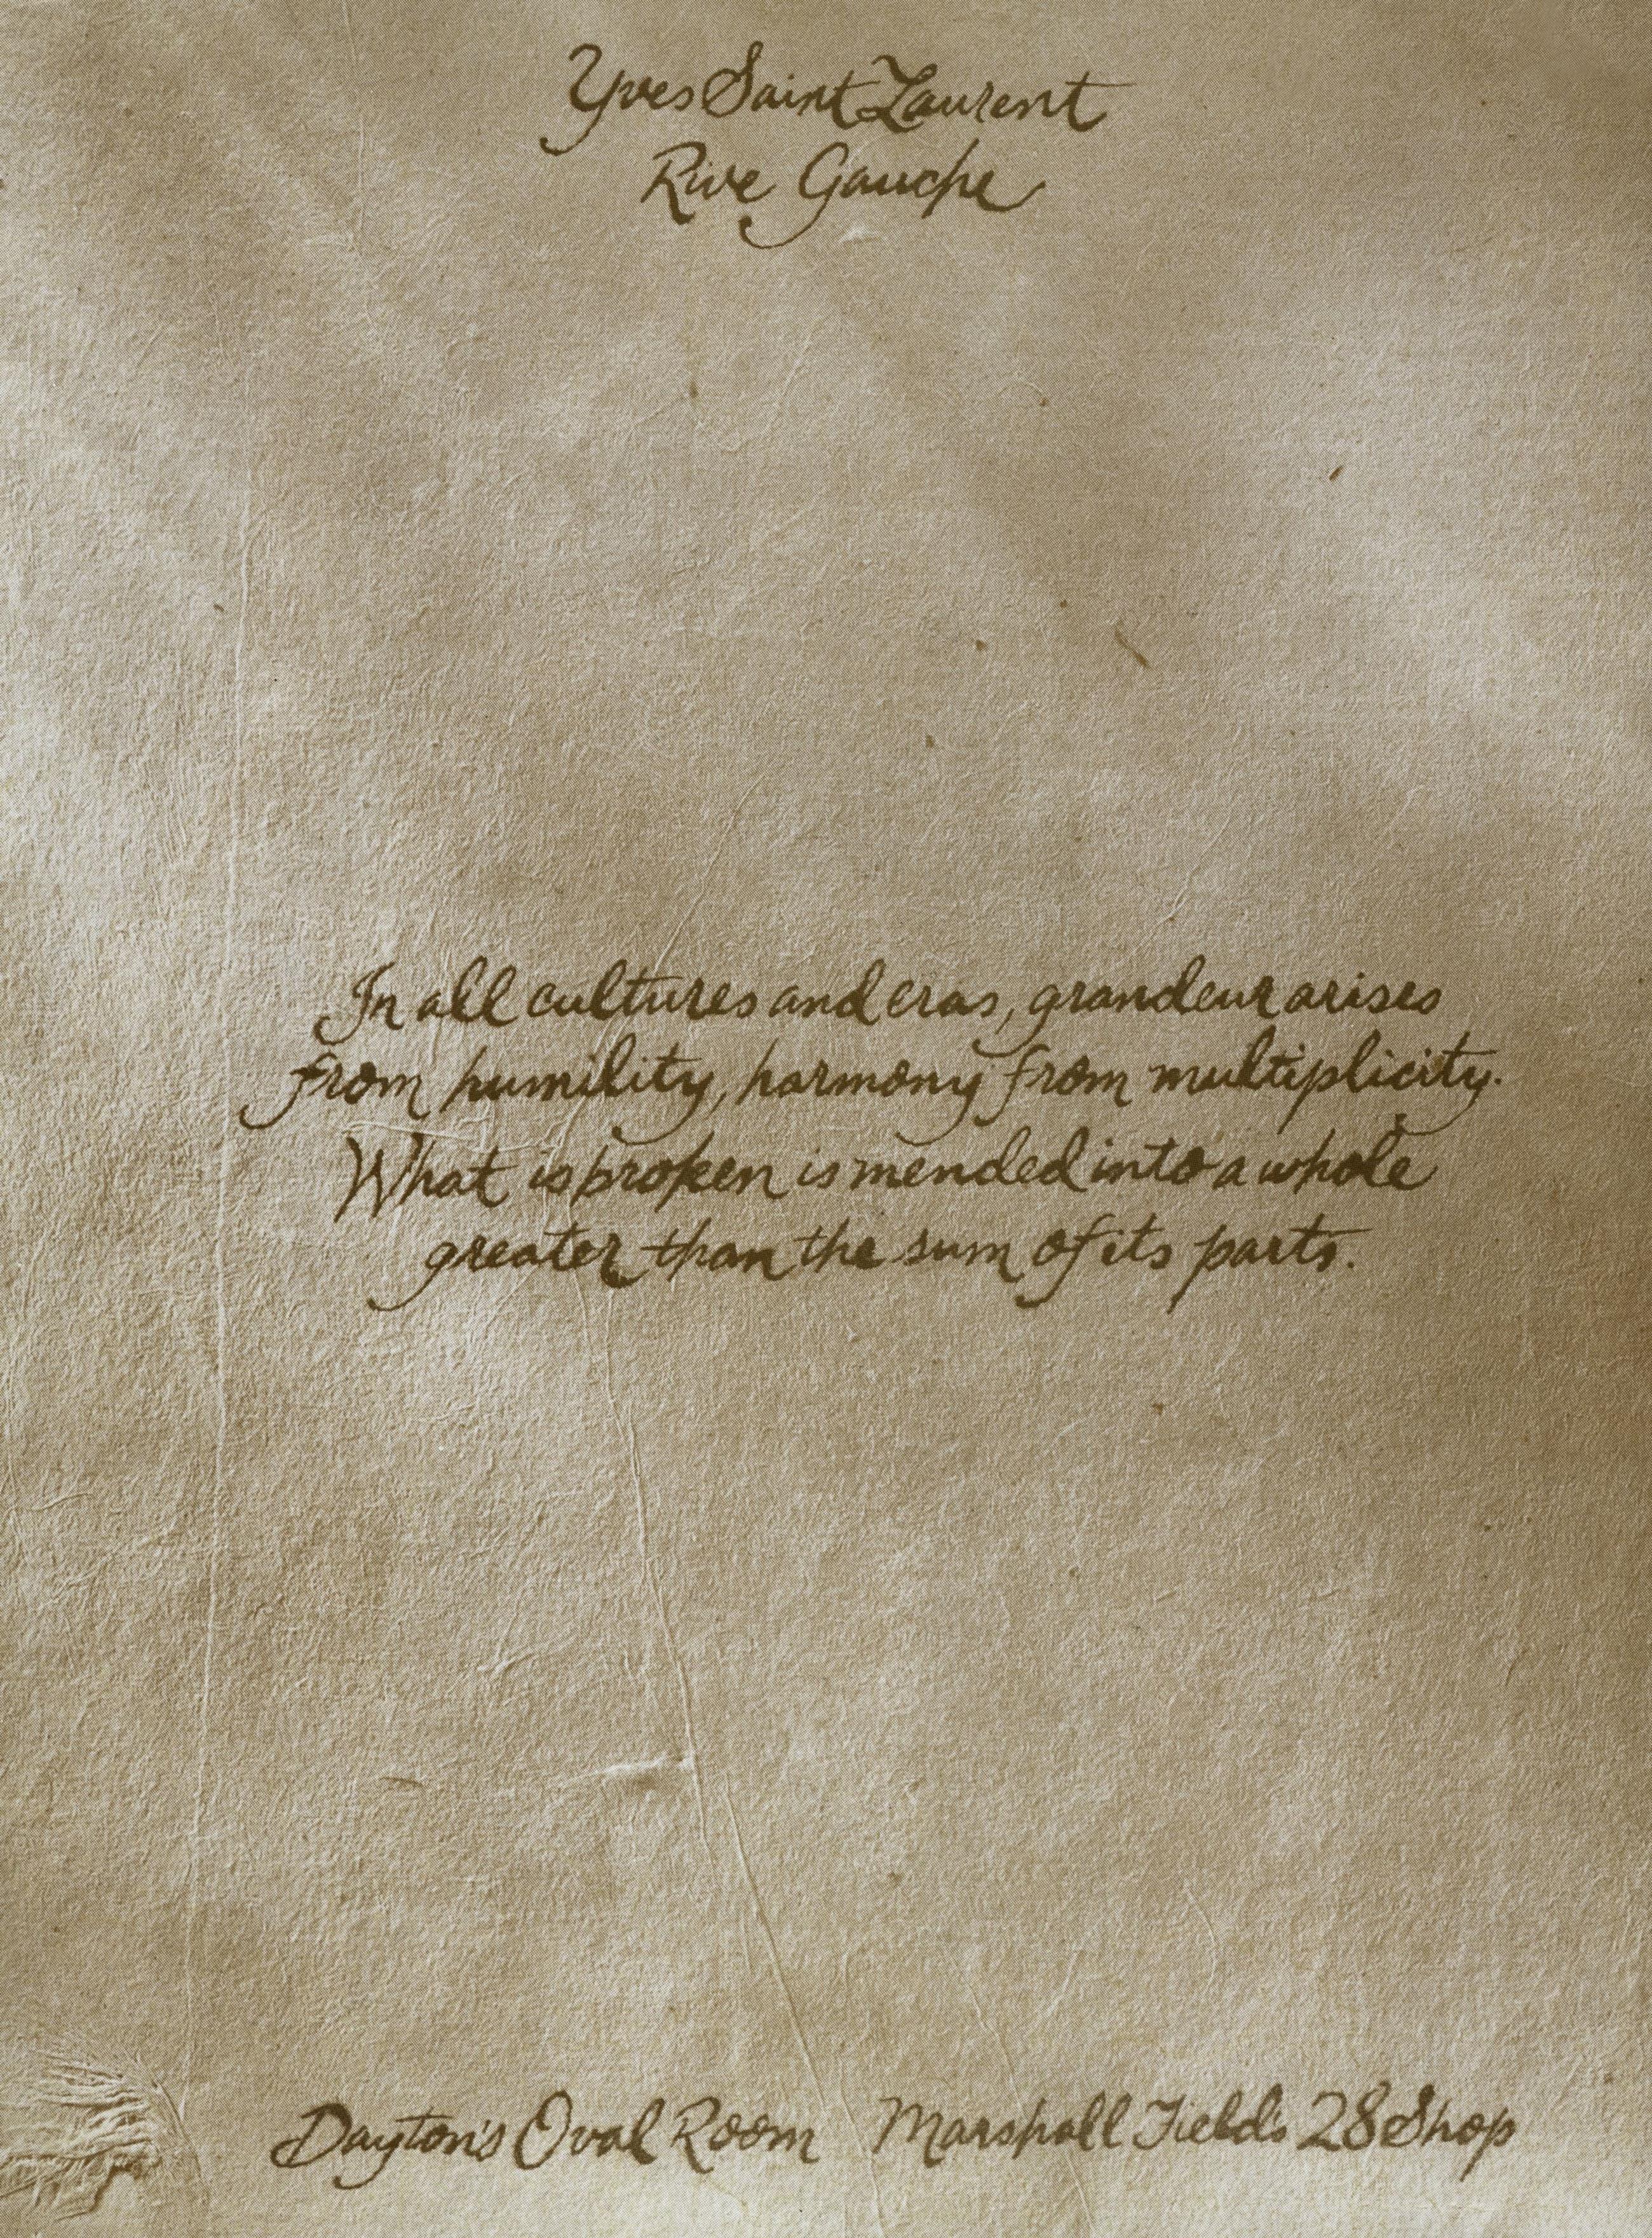 Yves Saint Laurent
Rive Gauche
In all cultures and eras, grandeur arises
from humility, harmony from multiplicity.
What is broken is mended into a whole
greater than the sum of its parts.
Dayton's Oval Room Marshall Field's 28 Shop